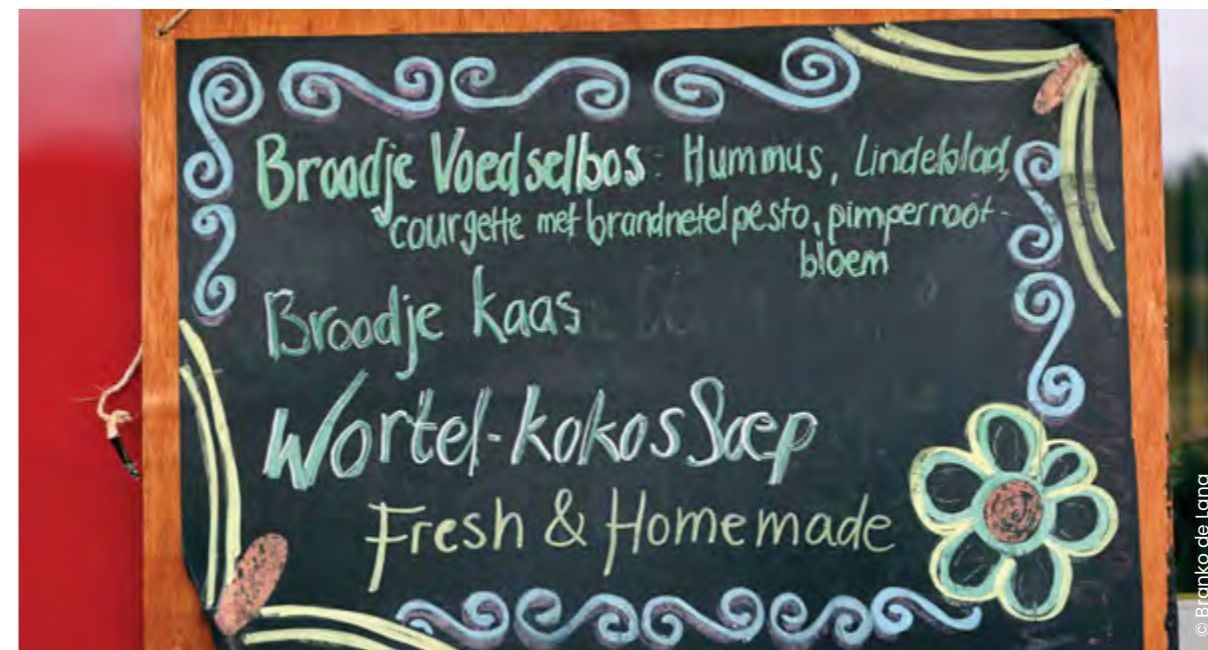 Broodje Voedselbos: Hummus, Lindeblad,
courgette met brandnetelpesto, pimpernoot-
bloem
Broodje kaas
Wortel-kokosSoep
Fresh & Homemade
© Branko de Lang